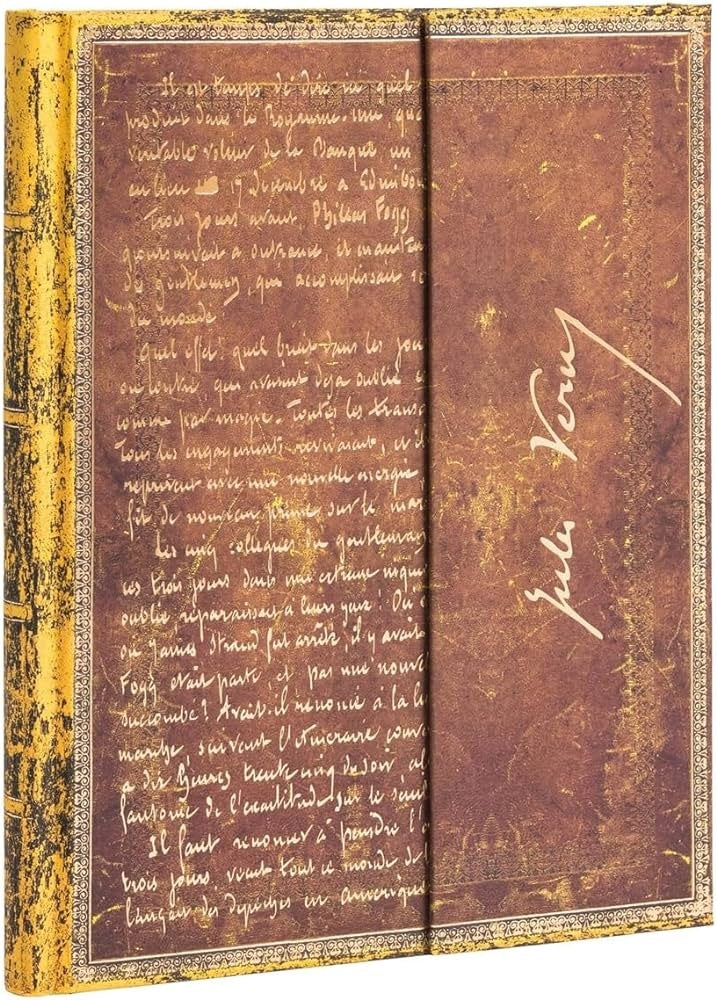 Il est temps de dire ici quel
produit dans le Royaume-Uni, qua
véritable voleur de la Banque, un
eu lieu 17 Décembre à Edimbou
Trois jours avant, Phileas Fogg
poursuivait à outrance, et mainten
de gentleman, qui accomplissait
du monde.
Quel effet! quel bruit dans les jou
ou contre, qui avaient déjà oublié c
comme par magie. Toutes les transa
Tous les engagements revivaient, et il
reprirent avec une nouvelle énergie
fit de nouveau prime sur le mar
Les cinq collègues du gentleman
ces trois jours dans une certaine inquié
oublié reparaissait à leurs yeux! Où
où James Strand fut arrêté, il y avait
Fogg était parti, et pas une nouve
succombé? Avait-il renoncé à la lu
marche, suivant l'itinéraire conve
à dix heures trente cinq du soir al
fantôme de l'exactitude, sur le seuil
Il faut renoncer à peindre l'a
trois jours, vécut tout ce monde de
lança des dépêches en Amérique
Jules Verne